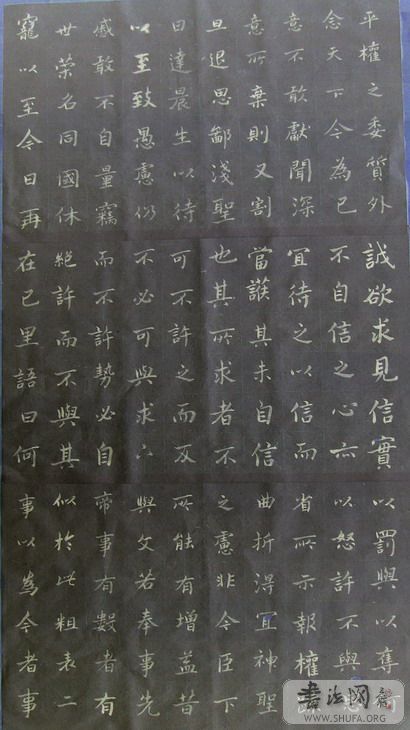 寵以至今日再
世榮名同國休
慼敢不自量竊
以至致愚慮仍
日達晨坐以待
旦退思鄙淺聖
意所棄則又割
意不敢獻聞深
念天下今為已
平權之委質外
誠欲求見信實
不自信之心亦
宜待之以信而
當護其未自信
也其所求者不
可不許之而反
不必可與求之
而不許勢必自
絕許而不與其
在己里語曰何
以罰與以奪何
以怒許不與思
省所示報權疏
曲折得宜神聖
之慮非今臣下
所能有增益昔
與文若奉事先
帝事有數者有
似於此粗表二
事以為今者事
书法网
WWW.SHUFA.ORG